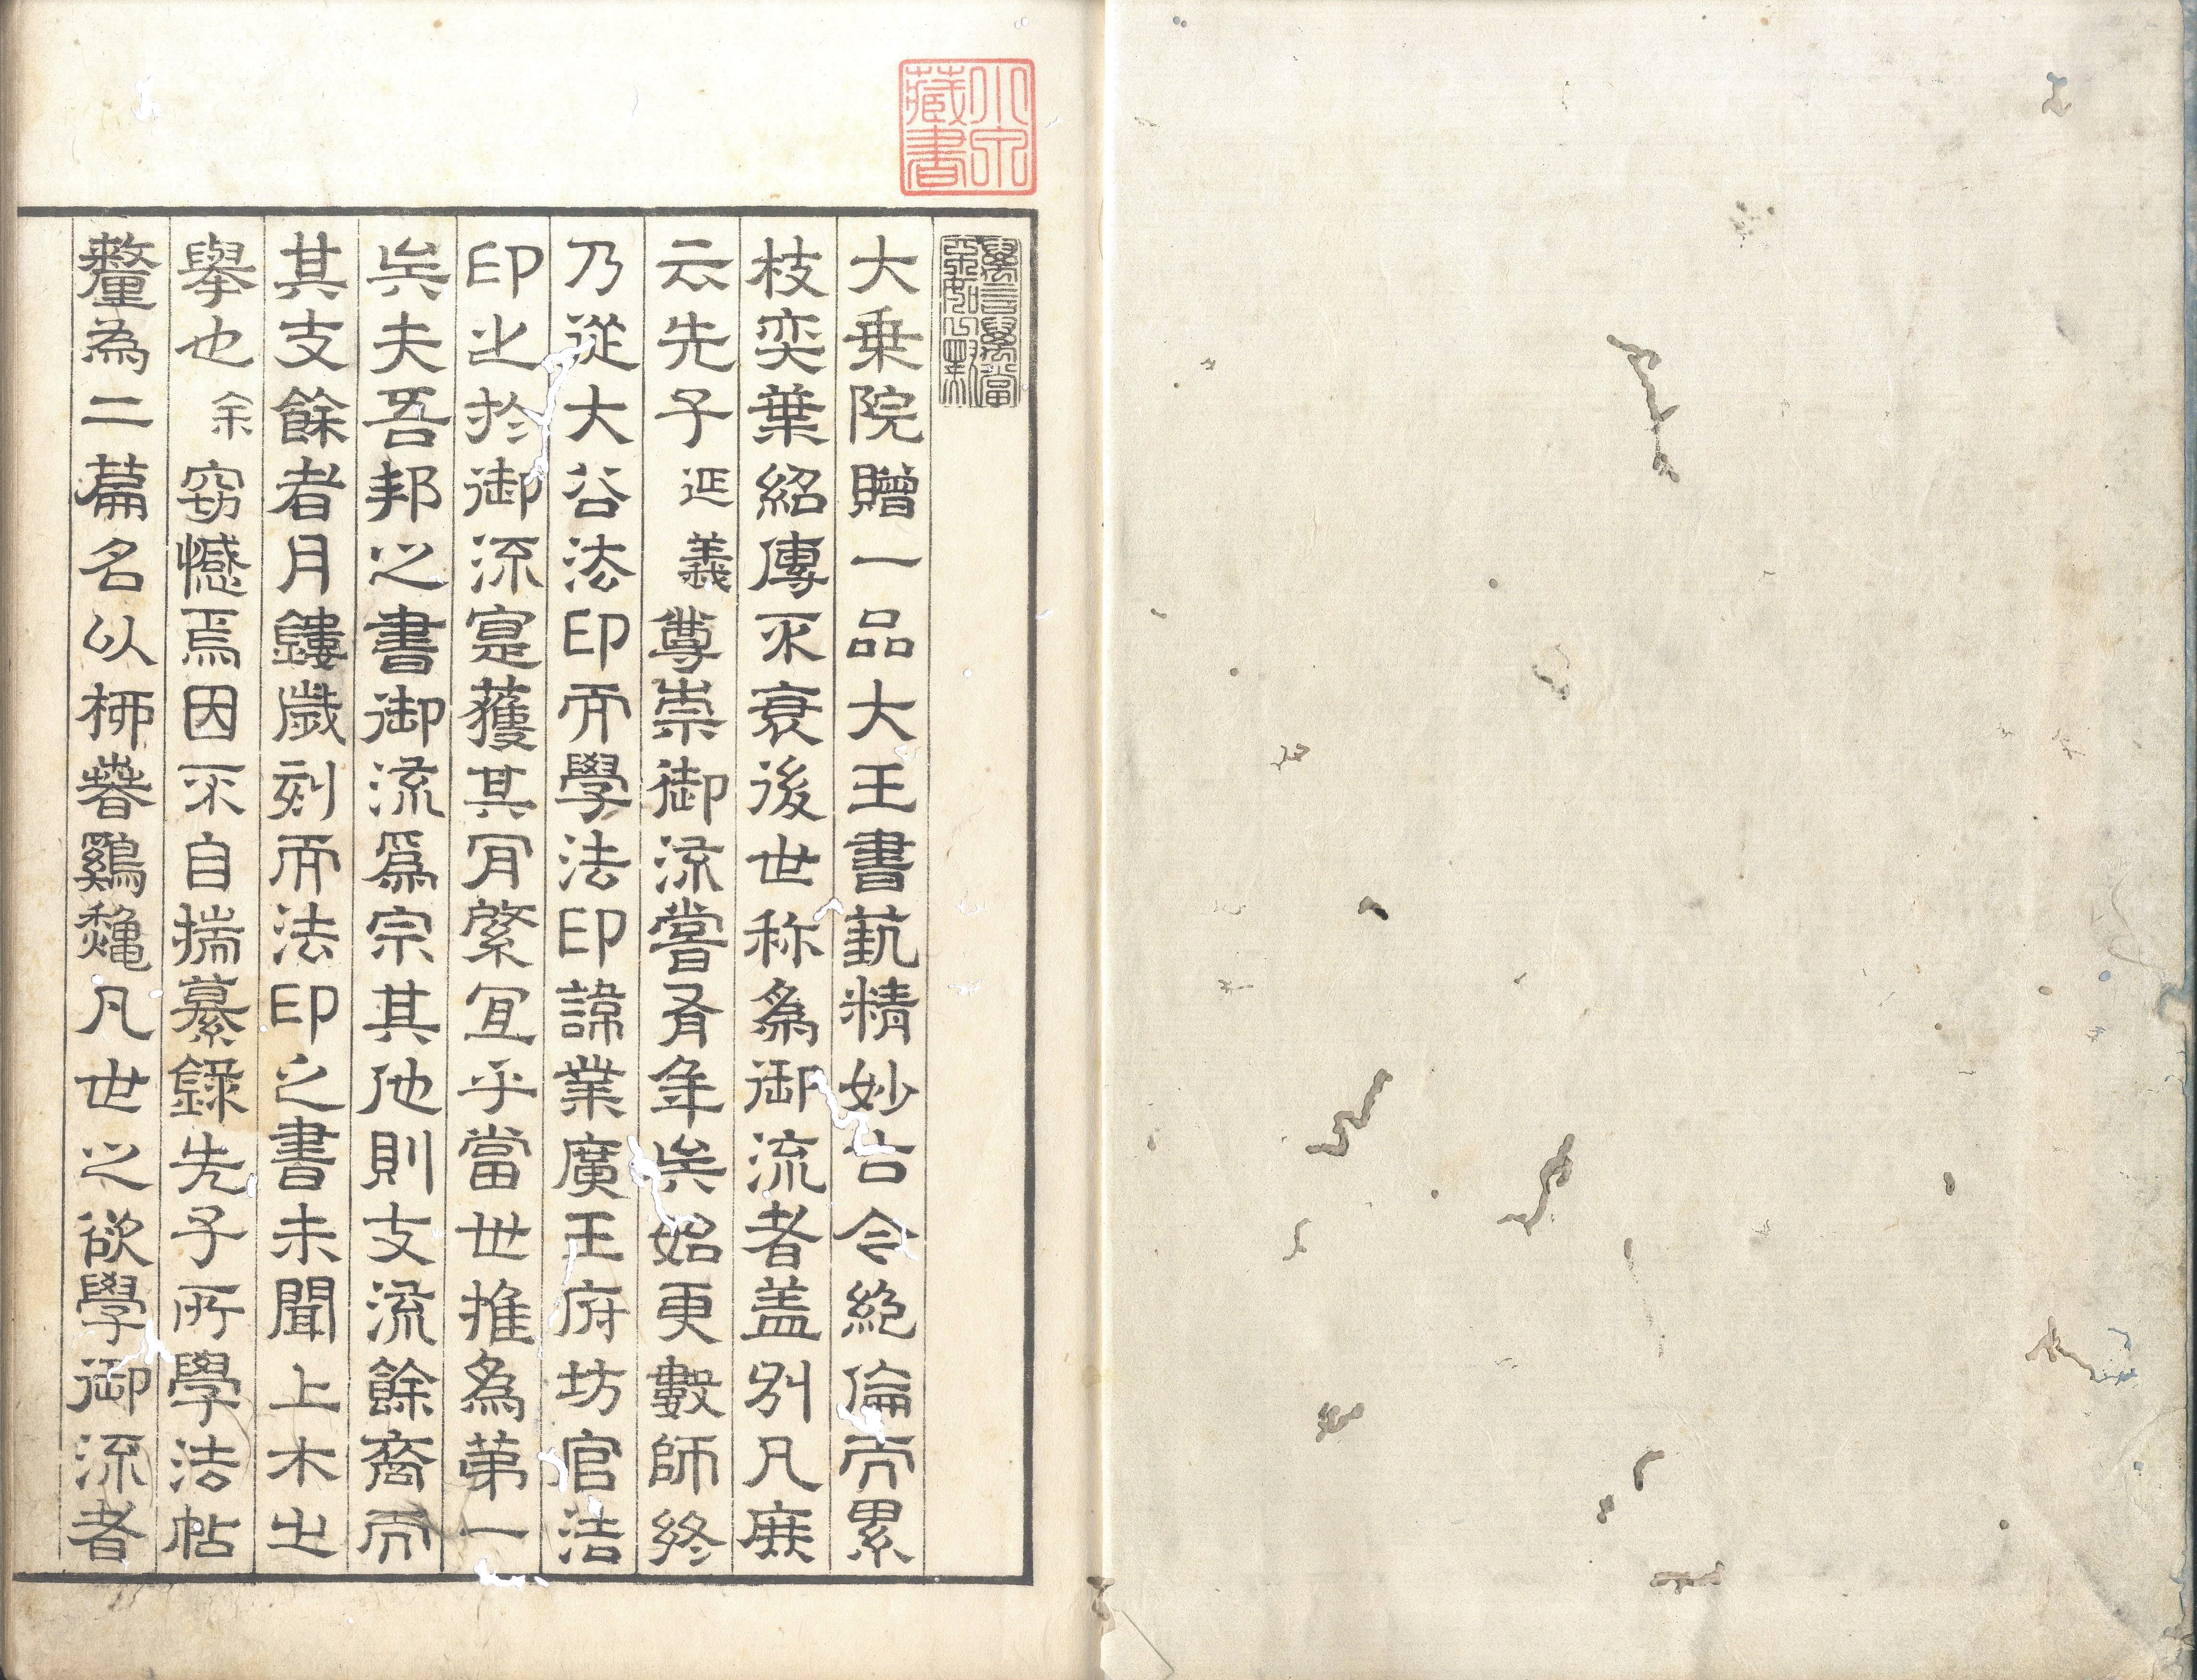 藏書
大乗院贈一品大王書蓺精妙古今絶倫而累
枝奕葉紹傳不衰後世称為御流者盖別凡庶
云先子延義尊崇御流嘗有年矣始更數師終
乃從大谷法印而學法印諱業廣王府坊官法
印之於御流寔獲其肎綮宜乎當世推為第一
矣夫吾邦之書御流爲宗其他則支流餘裔而
其支餘者月鏤歲刻而法印之書未聞上木之
擧也余窃憾焉因不自揣摹録先子所學法帖
釐為二篇名以栁萅鷄龝凡世之欲學御流者